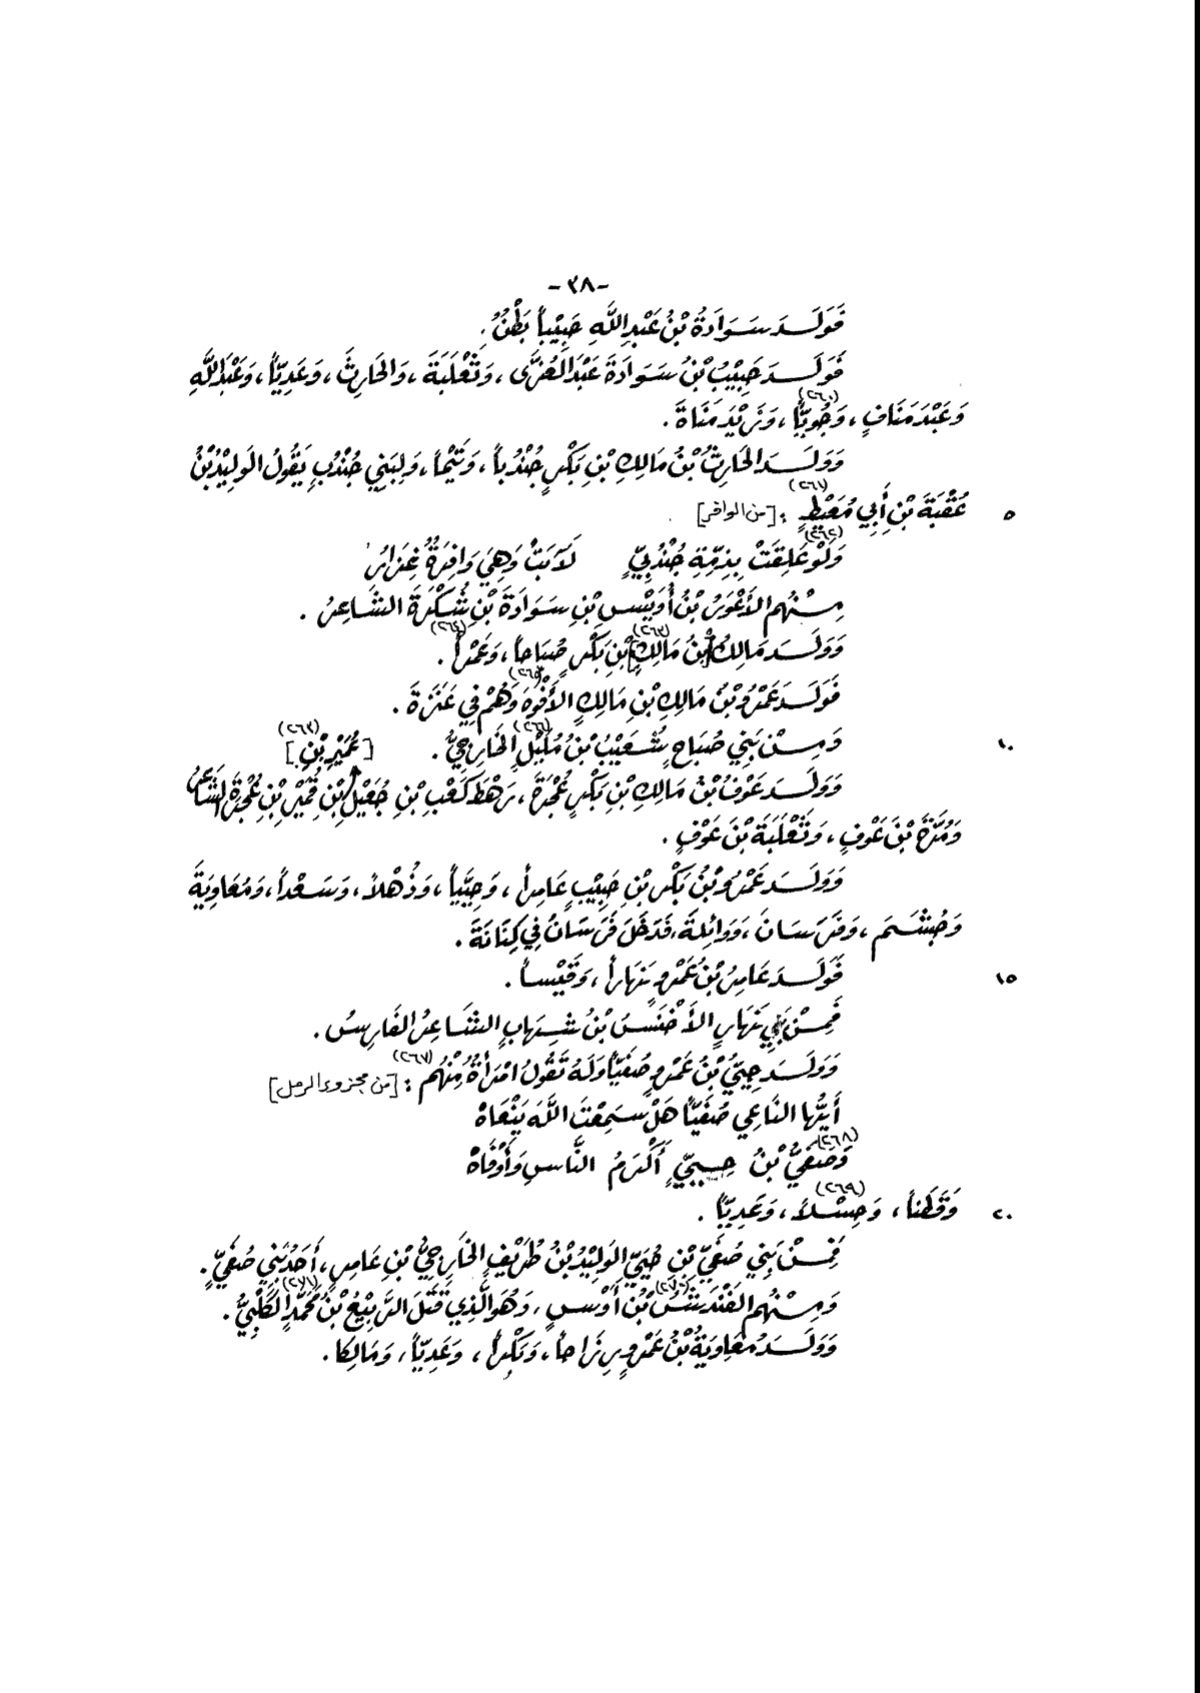 -٣٨-
فَوَلَـدَ سَـوَادَةُ بْنُ عَبْدِ اللَّهِ حَبِيْباً بَطْنٌ.
فَوَلَـدَ حَبِيْبُ بْنُ سَوَادَةَ عَبْدَ العُزَّى ، وَثَعْلَبَةَ ، وَالحَارِثَ ، وَعَدِيّاً ، وَعَبْدَ اللَّهِ
وَعَبْدَ مَنَافٍ ، وَجُوَيّاً (٢٦٠) ، وَزَيْدَ مَنَاةَ .
وَوَلَـدَ الحَارِثُ بْنُ مَالِكِ بْنِ بَكْرٍ جُنْدُباً ، وَتَيْماً ، وَلِبَنِي جُنْدُبٍ يَقُولُ الوَلِيْدُ بْنُ
٥ عُقْبَةَ بْنِ أَبِي مُعَيْطٍ (٢٦١) : [من الوافر]
وَلَوْ عَلِقَتْ (٢٦٢) بِذِمَّةِ جُنْدُبِيٍّ لَآبَتْ وَهِيَ وَافِرَةٌ غِزَارُ
مِـنْهُم الأَعْوَرُ بْنُ أُوَيْسِ بْنِ سَوَادَةَ بْنِ شُكْرَةَ الشَّاعِرُ .
وَوَلَـدَ مَالِكُ [بْنُ مَالِكِ] (٢٦٣) بْنِ بَكْرٍ صُبَاحاً ، وَعَمْراً (٢٦٤) .
فَوَلَـدَ عَمْرُو بْنُ مَالِكِ بْنِ مَالِكٍ الأَفْوَهَ (٢٦٥) وَهُمْ فِي عَنَزَةَ .
١٠ وَمِـنْ بَنِي صُبَاحٍ شُعَيْبُ بْنُ مُلَيْلٍ (٢٦٦) الخَارِجِيُّ . [عُمَيْرِ بْنِ] (٢٦٣)
وَوَلَـدَ عَوْفُ بْنُ مَالِكِ بْنِ بَكْرٍ عُجْرَةَ ، رَهْطَ كَعْبِ بْنِ جُعَيْلِ بْنِ قُمَيْرِ بْنِ عُجْرَةَ الشَّاعِرِ
وَمُرَّةَ بْنَ عَوْفٍ ، وَثَعْلَبَةَ بْنَ عَوْفٍ .
وَوَلَـدَ عَمْرُو بْنُ بَكْرِ بْنِ حَبِيْبٍ عَامِراً ، وَحِيَيّاً ، وَذُهْلاً ، وَسَـعْداً ، وَمُعَاوِيَةَ
وَجُشَـمَ ، وَفَرَسَانَ ، وَوَائِلَةَ ، فَدَخَلَ فَرَسَانُ فِي كِنَانَةَ .
١٥ فَوَلَـدَ عَامِرُ بْنُ عَمْرٍو نَهَاراً ، وَقَيْسـاً .
فَمِـنْ بَنِي نَهَارٍ الأَخْنَسُ بْنُ شِـهَابٍ الشَّاعِرُ الفَارِسُ .
وَوَلَـدَ حِيَيُّ بْنُ عَمْرٍو صُفَيّاً وَلَهُ تَقُولُ امْرَأَةٌ مِنْهُم (٢٦٧) : [من مجزوء الرمل]
أَيُّهَا النَّاعِي صُفَيّاً هَلْ سَـمِعْتَ اللَّهَ يَنْعَاهْ
وَصُفَيُّ (٢٦٨) بْنُ حِيَيٍّ أَكْرَمُ النَّاسِ وَأَوْفَاهْ
٢٠ وَقَطَناً ، وَحِسْـلاً (٢٦٩) ، وَعَدِيّاً .
فَمِـنْ بَنِي صُفَيِّ بْنِ حُيَيٍّ الوَلِيْدُ بْنُ طَرِيْفٍ الخَارِجِيُّ بْنِ عَامِرٍ ، أَحَدُ بَنِي صُفَيٍّ .
وَمِـنْهُم الفَنْدَشُ (٢٧٠) بْنُ أَوْسٍ ، وَهُوَ الَّذِي قَتَلَ الرَّبِيْعَ بْنَ مُحَمَّدٍ (٢٧١) الكَلْبِيَّ .
وَوَلَـدَ مُعَاوِيَةُ بْنُ عَمْرٍو رِزَاحاً ، وَبَكْراً ، وَعَدِيّاً ، وَمَالِكا .